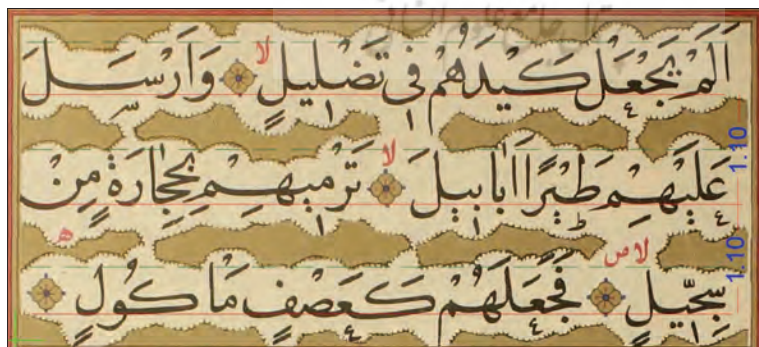 اَلَمْ يَجْعَلْ كَيْدَهُمْ فِى تَضْلِيلٍ لا وَاَرْسَلَ
عَلَيْهِمْ طَيْرًا اَبَابِيلَ لا تَرْمِيهِمْ بِحِجَارَةٍ مِنْ
سِجِّيلٍ لا ص فَجَعَلَهُمْ كَعَصْفٍ مَأْكُولٍ
1.10
1.10